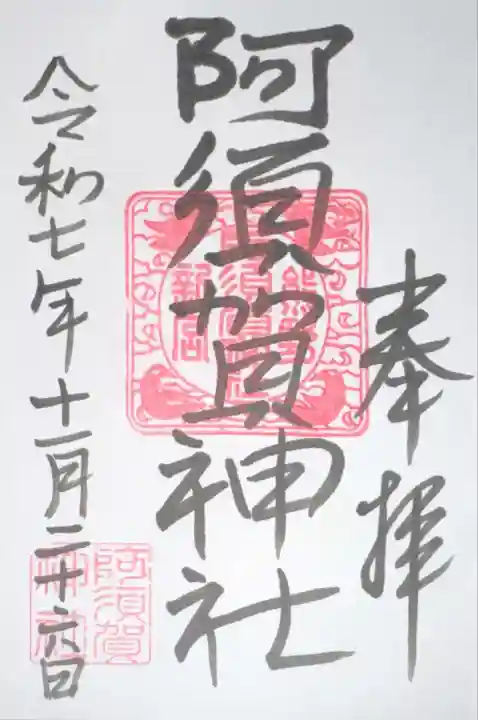 奉拝
阿須賀神社
熊野
阿須賀
新宮
令和七年十一月二十六日
阿須賀
神社